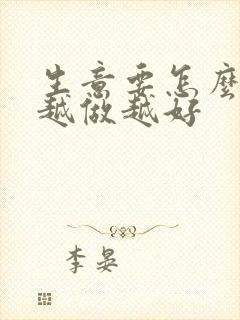 生意要怎麼
越做越好
李晏